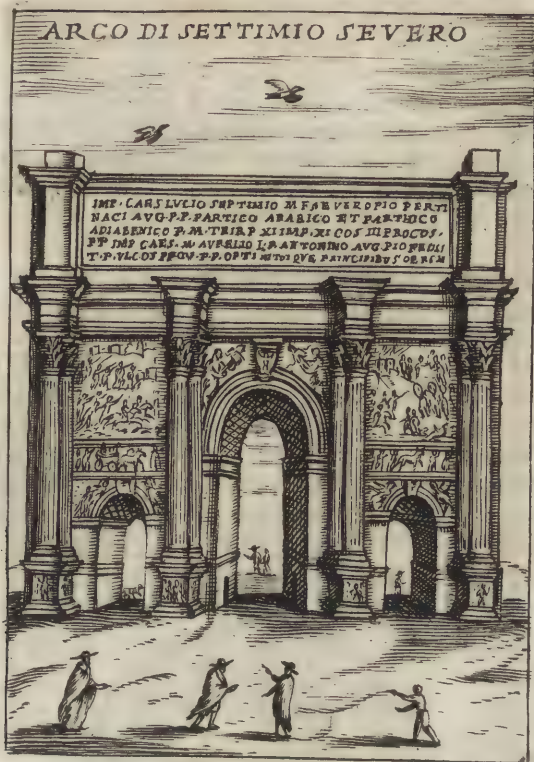 ARCO DI SETTIMIO SEVERO
IMP · CAES LVCIO SEPTIMIO M F SEVERO PIO PERTI
NACI AVG · P · P · PARTICO ARABICO ET PARTHICO
ADIABENICO P · M · TRIB P XI IMP · XI COS III PROCOS ·
ET IMP CAES · M · AVRELIO L · F ANTONINO AVG · PIO FELICI
T · P · VI · COS PROCO · P · P · OPTI QVE PRINCIPIBVS